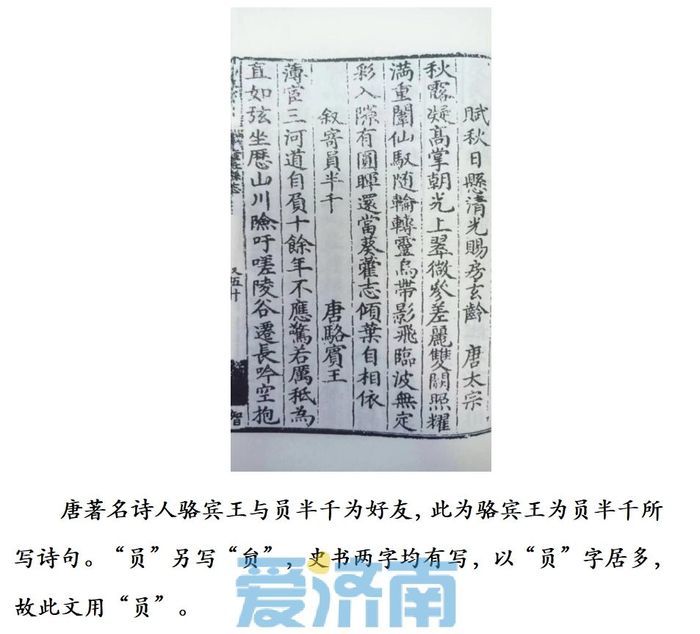 賦秋日懸清光賜房玄齡 唐太宗
秋露凝高掌朝光上翠微參差麗雙闕照耀
滿重闈仙馭随輪轉靈烏帶影飛臨波無定
彩入隙有圓暉還當葵藿志傾葉自相依
叙寄員半千 唐駱賓王
薄宦三河道自負十餘年不應驚若厲秪為
直如弦坐歷山川險吁嗟陵谷遷長吟空抱
又五十
智
唐著名诗人骆宾王与员半千为好友，此为骆宾王为员半千所
写诗句。“员”另写“贠”，史书两字均有写，以“员”字居多，
故此文用“员”。
爱济南